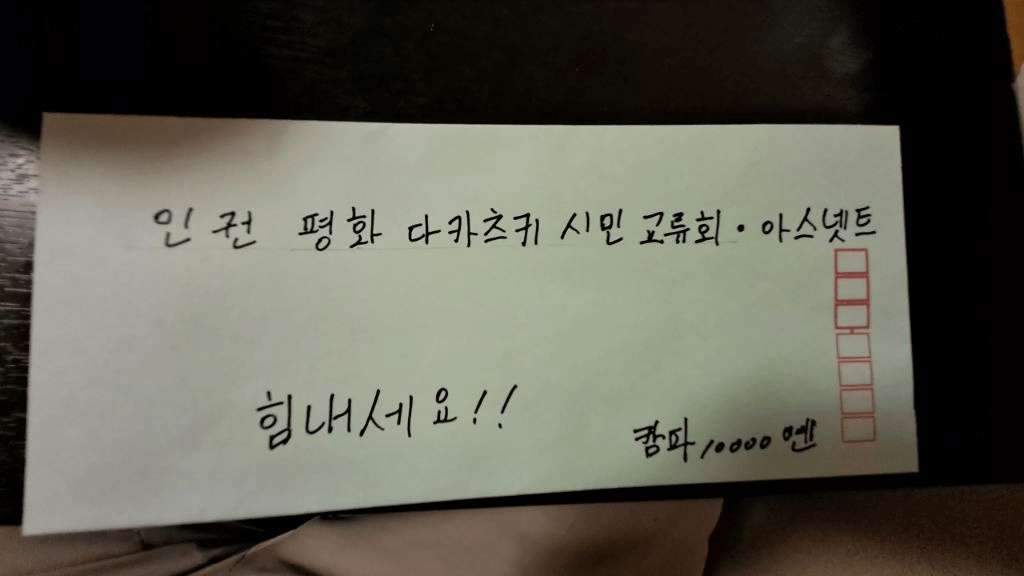 인권 평화 다카츠키 시민 교류회·아스넷트
힘내세요!!
캄파 10000엔